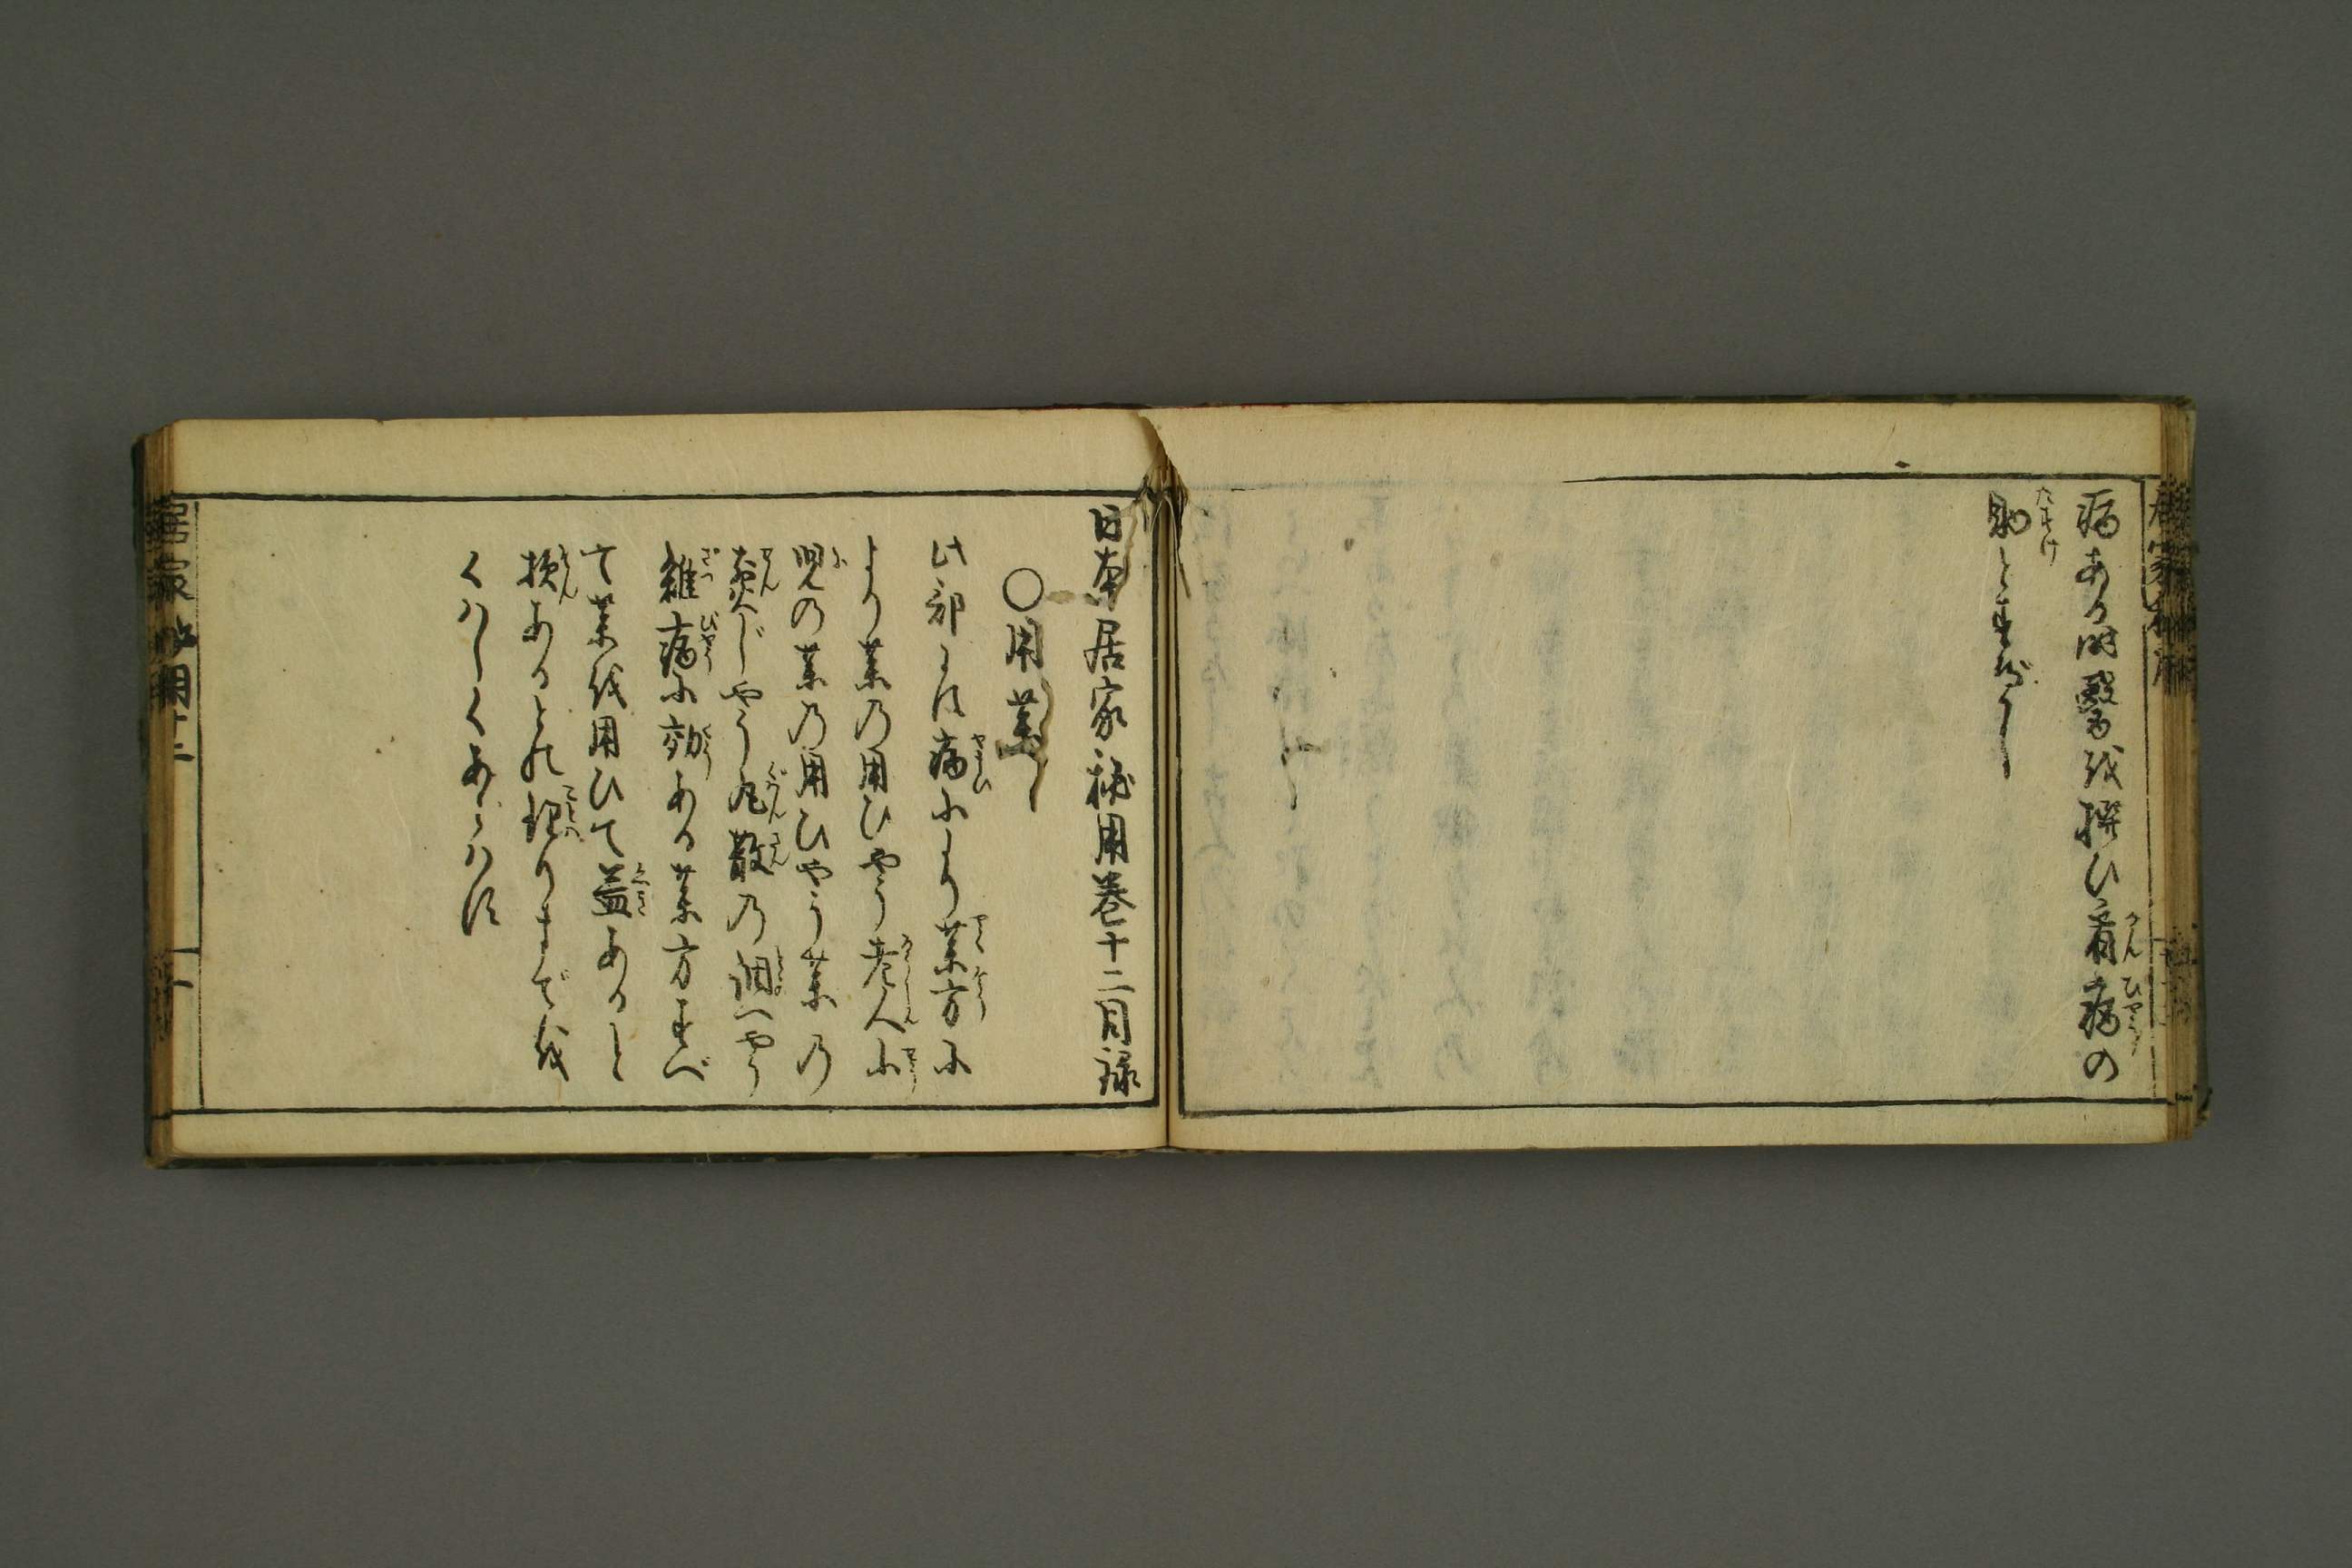 病ある時醫を撰ひ看病の
助とすべし
日本居家秘用巻十二目録
○用薬
此部には病によりて薬方に
より薬の用ひやう老人小
児の薬の用ひやう薬の
煎じやう丸散の調へやう
雑病に効ある薬方すべ
て薬を用ひて益あると
損あるとの理りまでを
くはしくあらはす